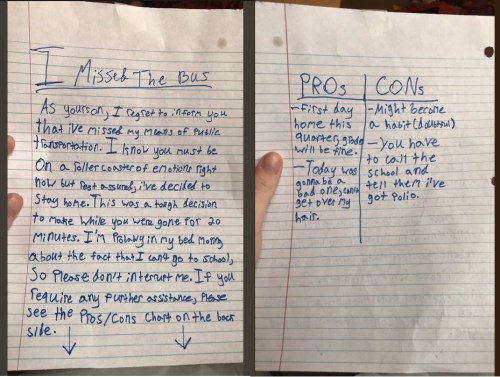 I Missed The Bus
As yourson, I regret to inform you
that i've missed my means of public
transportation. I know you must be
on a rollercoaster of emotions right
now but rest assured, i've decided to
stay home. This was a tough decision
to make while you were gone for 20
minutes. I'm probably in my bed moping
about the fact that I can't go to school,
so please don't interrupt me. If you
require any further assistance, please
see the Pros/Cons chart on the back
side.
PROs
-First day
home this
quarter, grades
will be fine.
-Today was
gonna be a
bad one, can't
get over my
hair.
CONs
-Might become
a habit (doubtful)
-You have
to call the
school and
tell them i've
got polio.